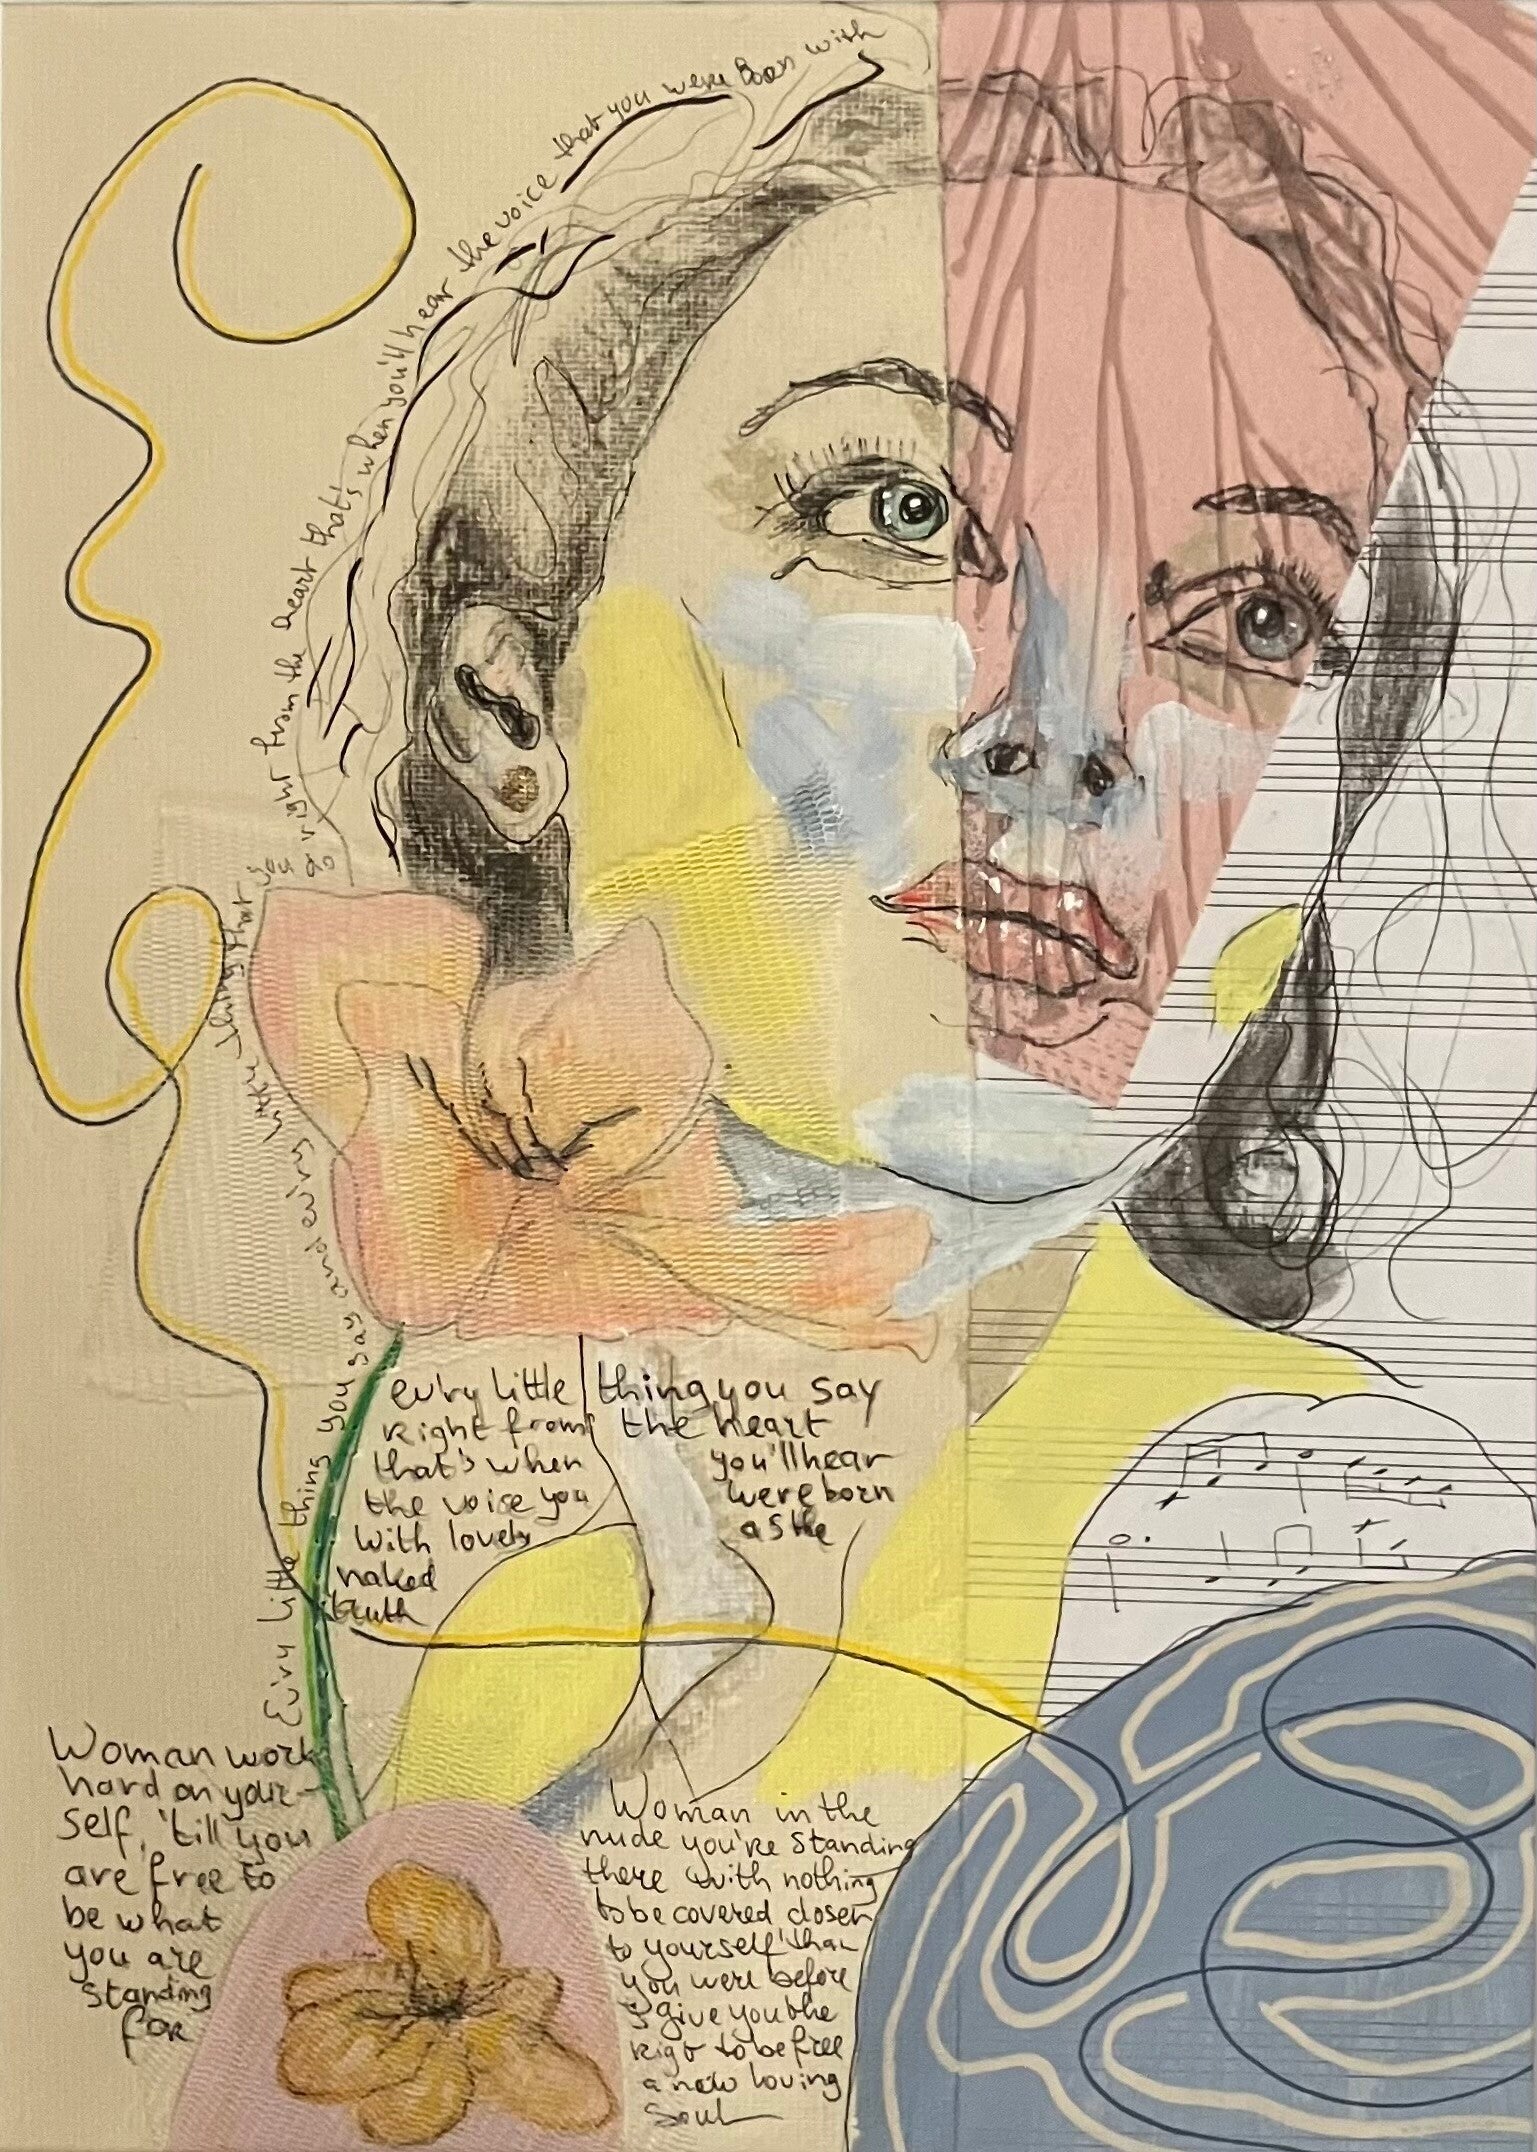 Ev'ry little thing you say and ev'ry little thing that you do right from the heart that's when you'll hear the voice that you were Born with
ev'ry little thing you say
Right from the heart
that's when you'll hear
the voice you were born
with lovely as the
naked
truth
Woman work
hard on your-
self, 'till you
are free to
be what
you are
standing
for
Woman in the
nude you're standing
there with nothing
to be covered closer
to yourself than
you were before
I give you the
Right to be free
a new loving
Soul